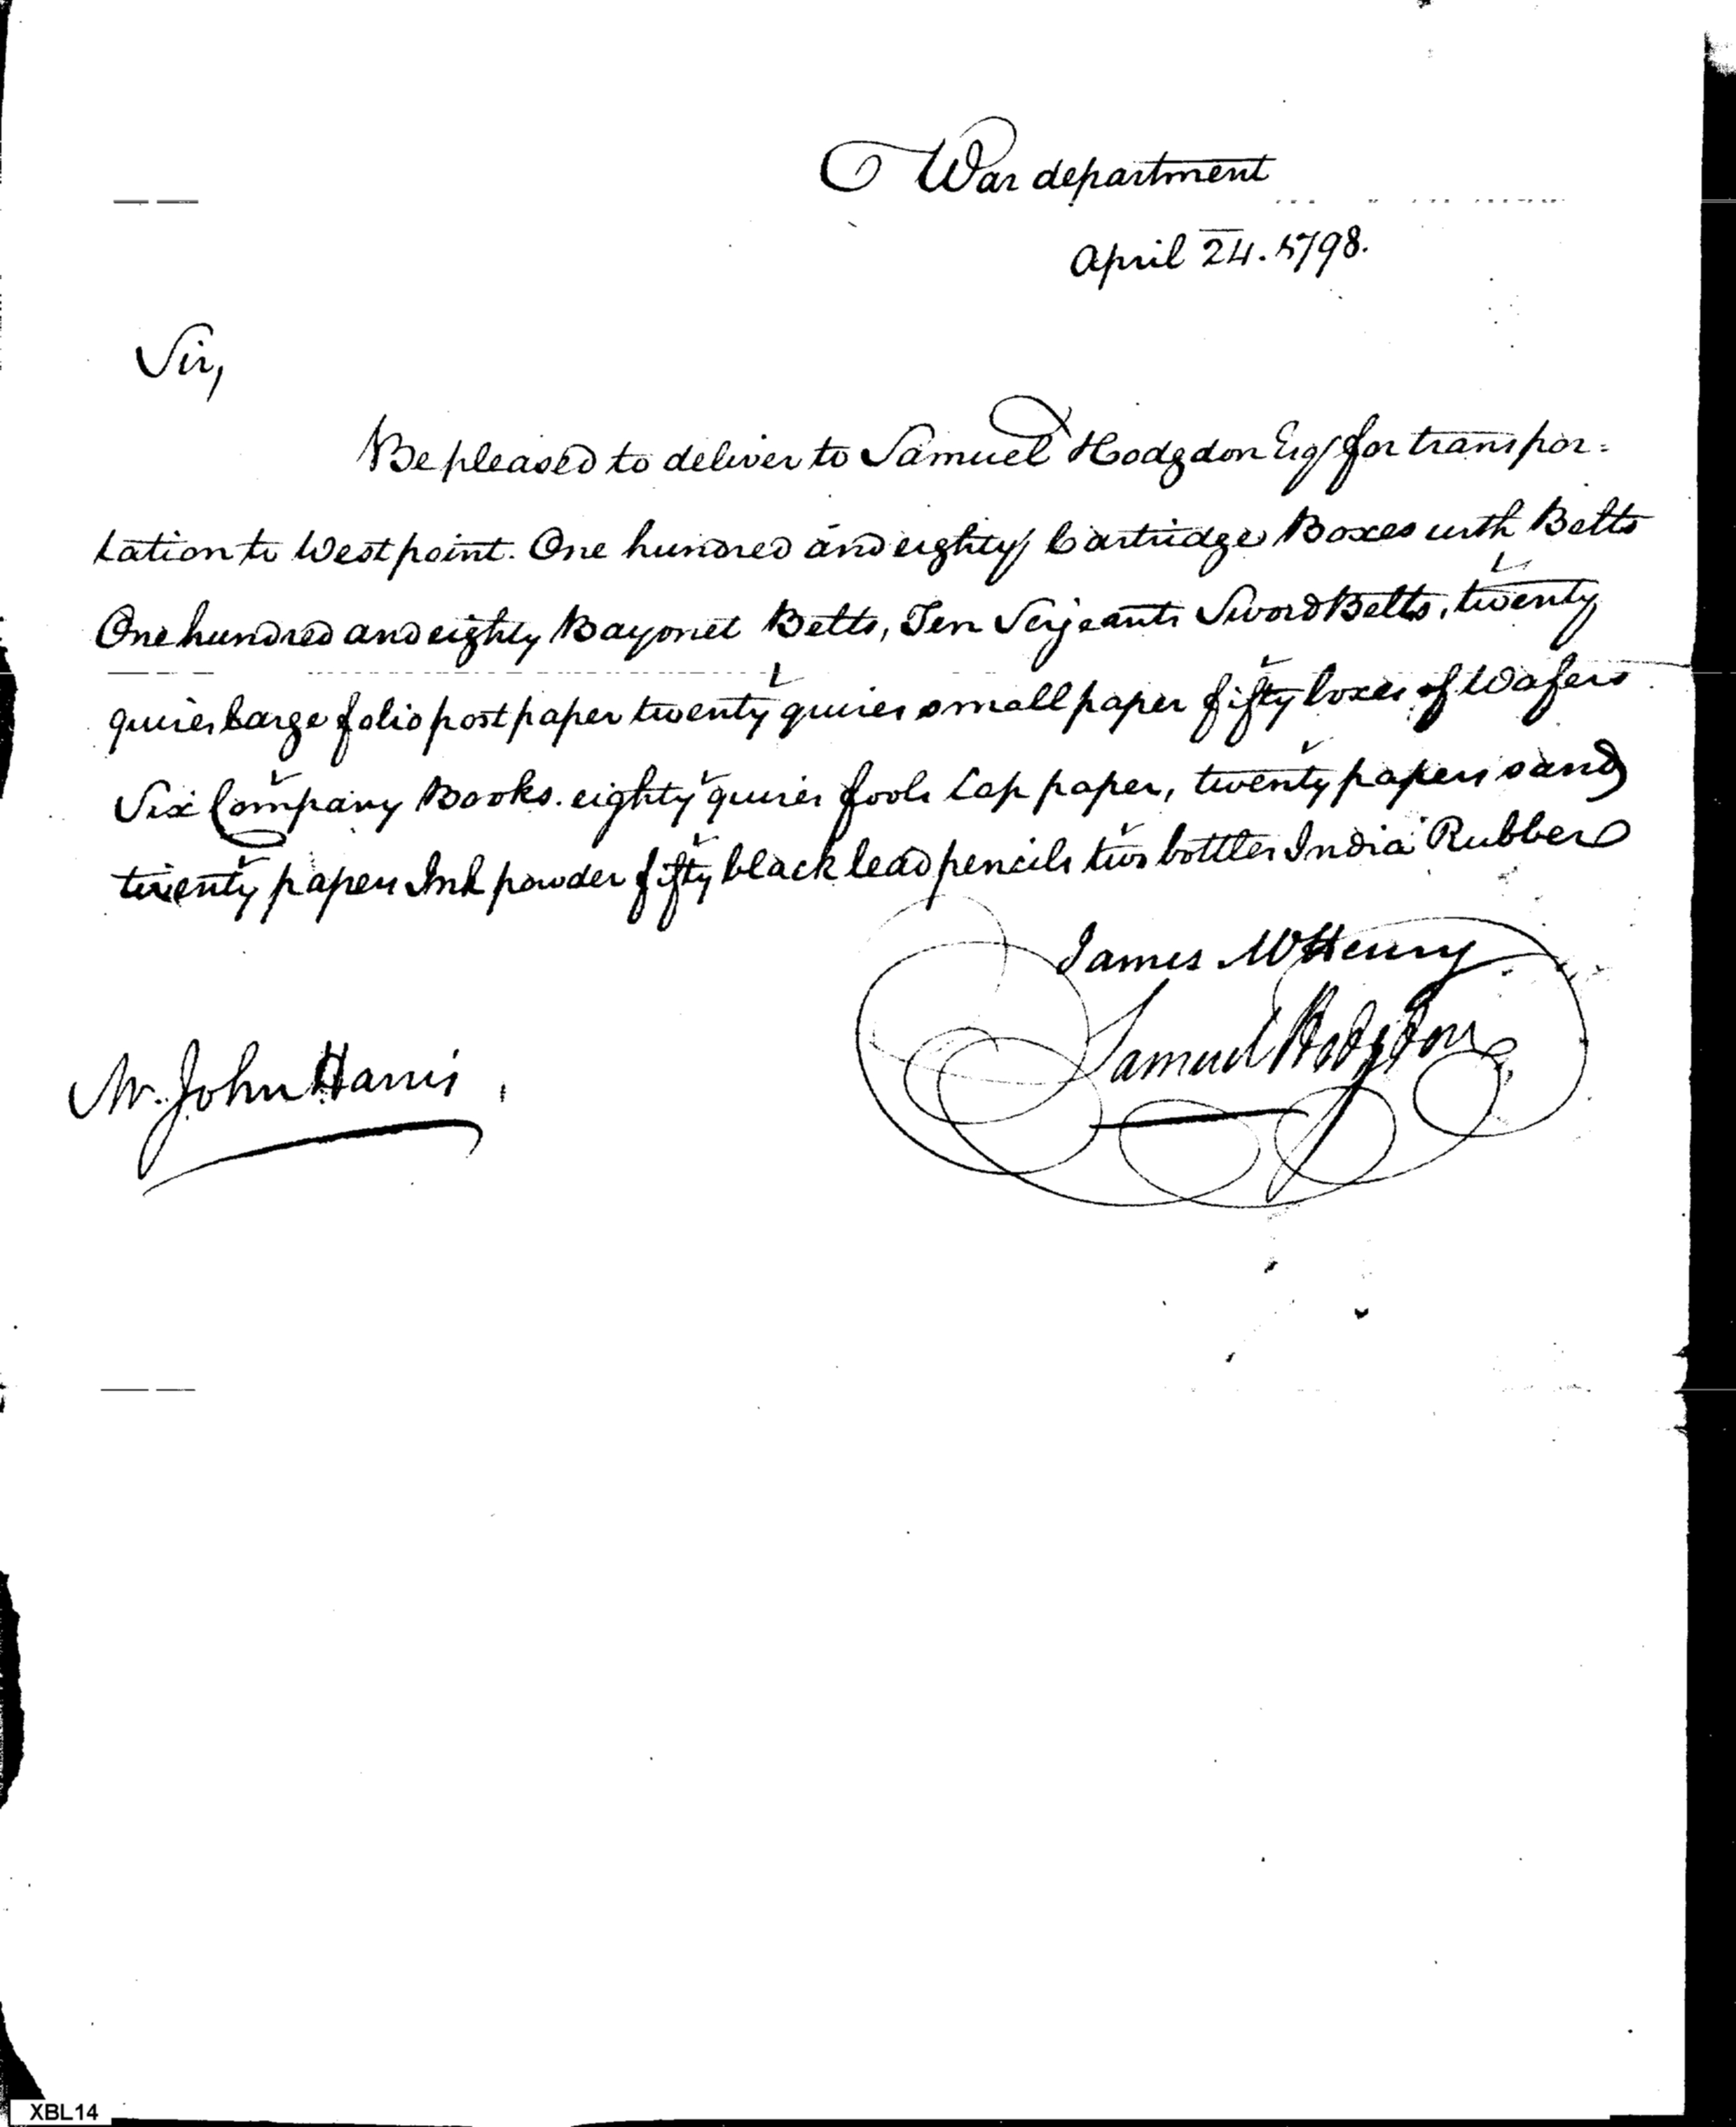 War department
April 24. 1798.
Sir,
Be pleased to deliver to Samuel Hodgdon Esq for transpor=
tation to Westpoint. One hundred and eighty Cartridge Boxes with Belts
One hundred and eighty Bayonet Belts, Ten Serjeants Sword Belts, twenty
quires large folio post paper twenty quires small paper fifty boxes of Wafers
Six Company Books. eighty quires fools Cap paper, twenty papers sand
twenty papers Ink powder fifty black lead pencils two bottles India Rubber
James McHenry
Samuel Hodgdon
Mr. John Harris,
XBL14